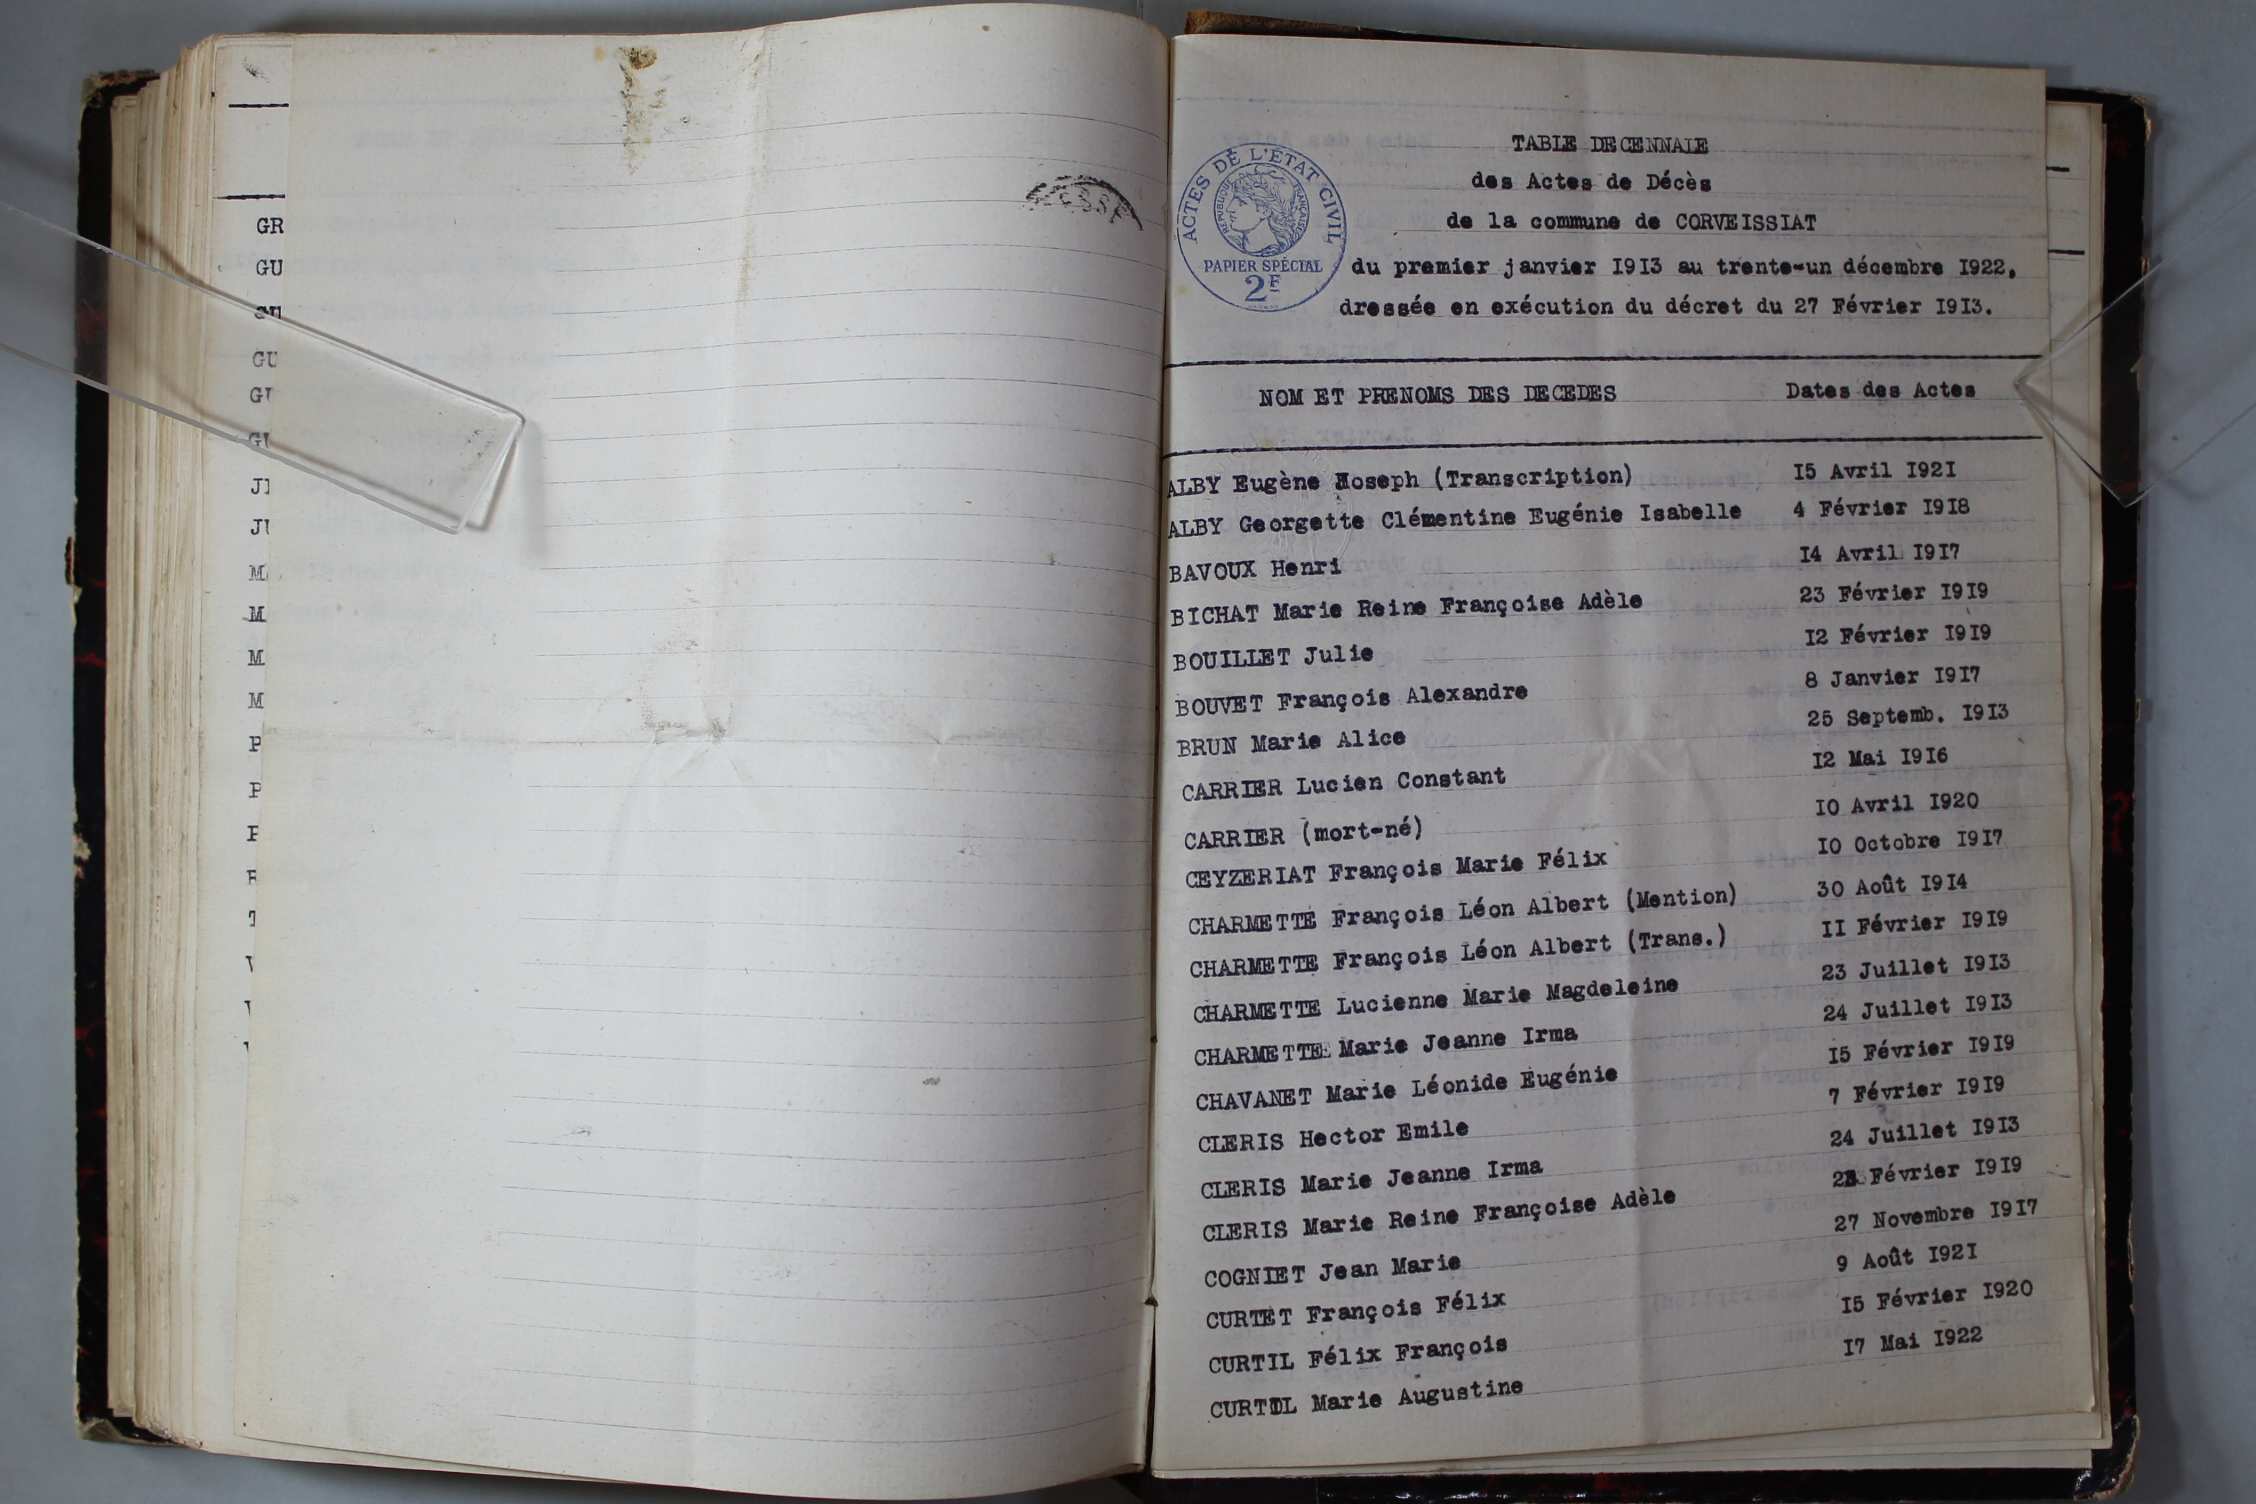 GR
GU
GU
GU
M
M
M
M
P
P
ESSE
ACTES DE L'ÉTAT CIVIL
RÉPUBLIQUE FRANÇAISE
PAPIER SPÉCIAL
2F
TABLE DECENNALE
des Actes de Décès
de la commune de CORVEISSIAT
du premier janvier 1913 au trente-un décembre 1922,
dressée en exécution du décret du 27 Février 1913.
NOM ET PRENOMS DES DECEDES Dates des Actes
ALBY Eugène Joseph (Transcription) 15 Avril 1921
ALBY Georgette Clémentine Eugénie Isabelle 4 Février 1918
BAVOUX Henri 14 Avril 1917
BICHAT Marie Reine Françoise Adèle 23 Février 1919
BOUILLET Julie 12 Février 1919
BOUVET François Alexandre 8 Janvier 1917
BRUN Marie Alice 25 Septemb. 1913
CARRIER Lucien Constant 12 Mai 1916
CARRIER (mort-né) 10 Avril 1920
CEYZERIAT François Marie Félix 10 Octobre 1917
CHARMETTE François Léon Albert (Mention) 30 Août 1914
CHARMETTE François Léon Albert (Trans.) 11 Février 1919
CHARMETTE Lucienne Marie Magdeleine 23 Juillet 1913
CHARMETTE Marie Jeanne Irma 24 Juillet 1913
CHAVANET Marie Léonide Eugénie 15 Février 1919
CLERIS Hector Emile 7 Février 1919
CLERIS Marie Jeanne Irma 24 Juillet 1913
CLERIS Marie Reine Françoise Adèle 23 Février 1919
COGNIET Jean Marie 27 Novembre 1917
CURTET François Félix 9 Août 1921
CURTIL Félix François 15 Février 1920
CURTIL Marie Augustine 17 Mai 1922